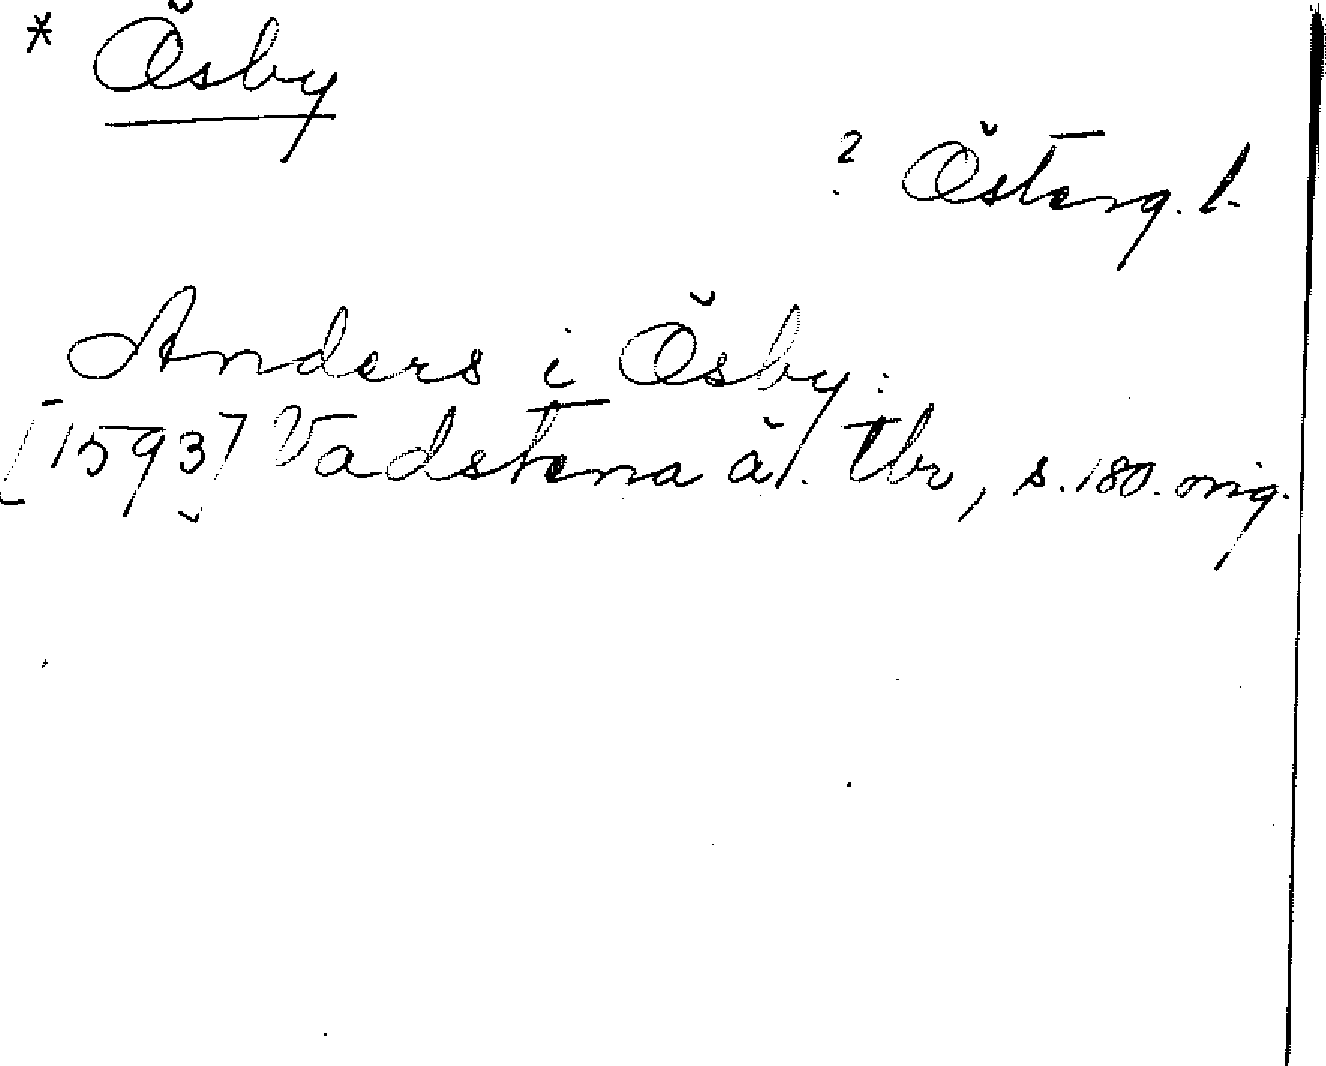 * Ösby
? Österg. l.
Anders i Ösby.
[1593] Vadstena äl. tbr, s. 180. orig.